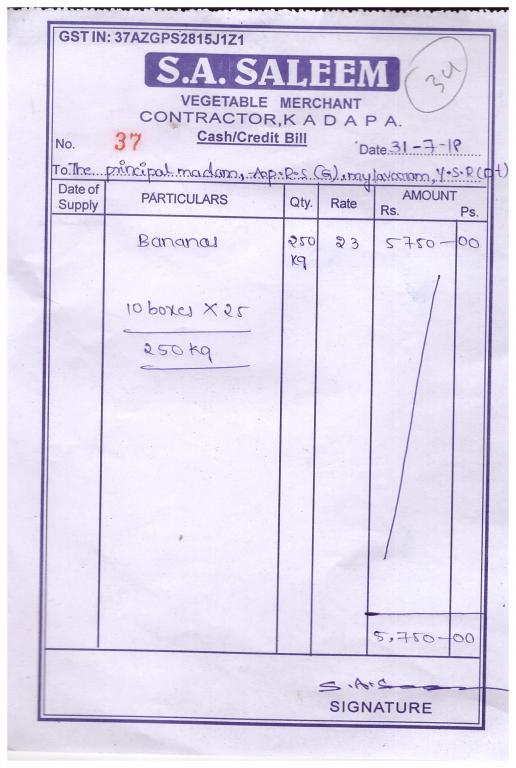 GST IN: 37AZGPS2815J1Z1
34
S.A. SALEEM
VEGETABLE MERCHANT
CONTRACTOR, K A D A P A.
Cash/Credit Bill
No. 37 Date 31-7-18
To. The principal madam, A.p.R.S (G), mylavaram, Y.S.R (Dt)
Date of Supply PARTICULARS Qty. Rate AMOUNT Rs. Ps.
Bananas 250 kg 23 5750-00
10 boxes X 25
250 kg
5,750-00
S.A.S
SIGNATURE